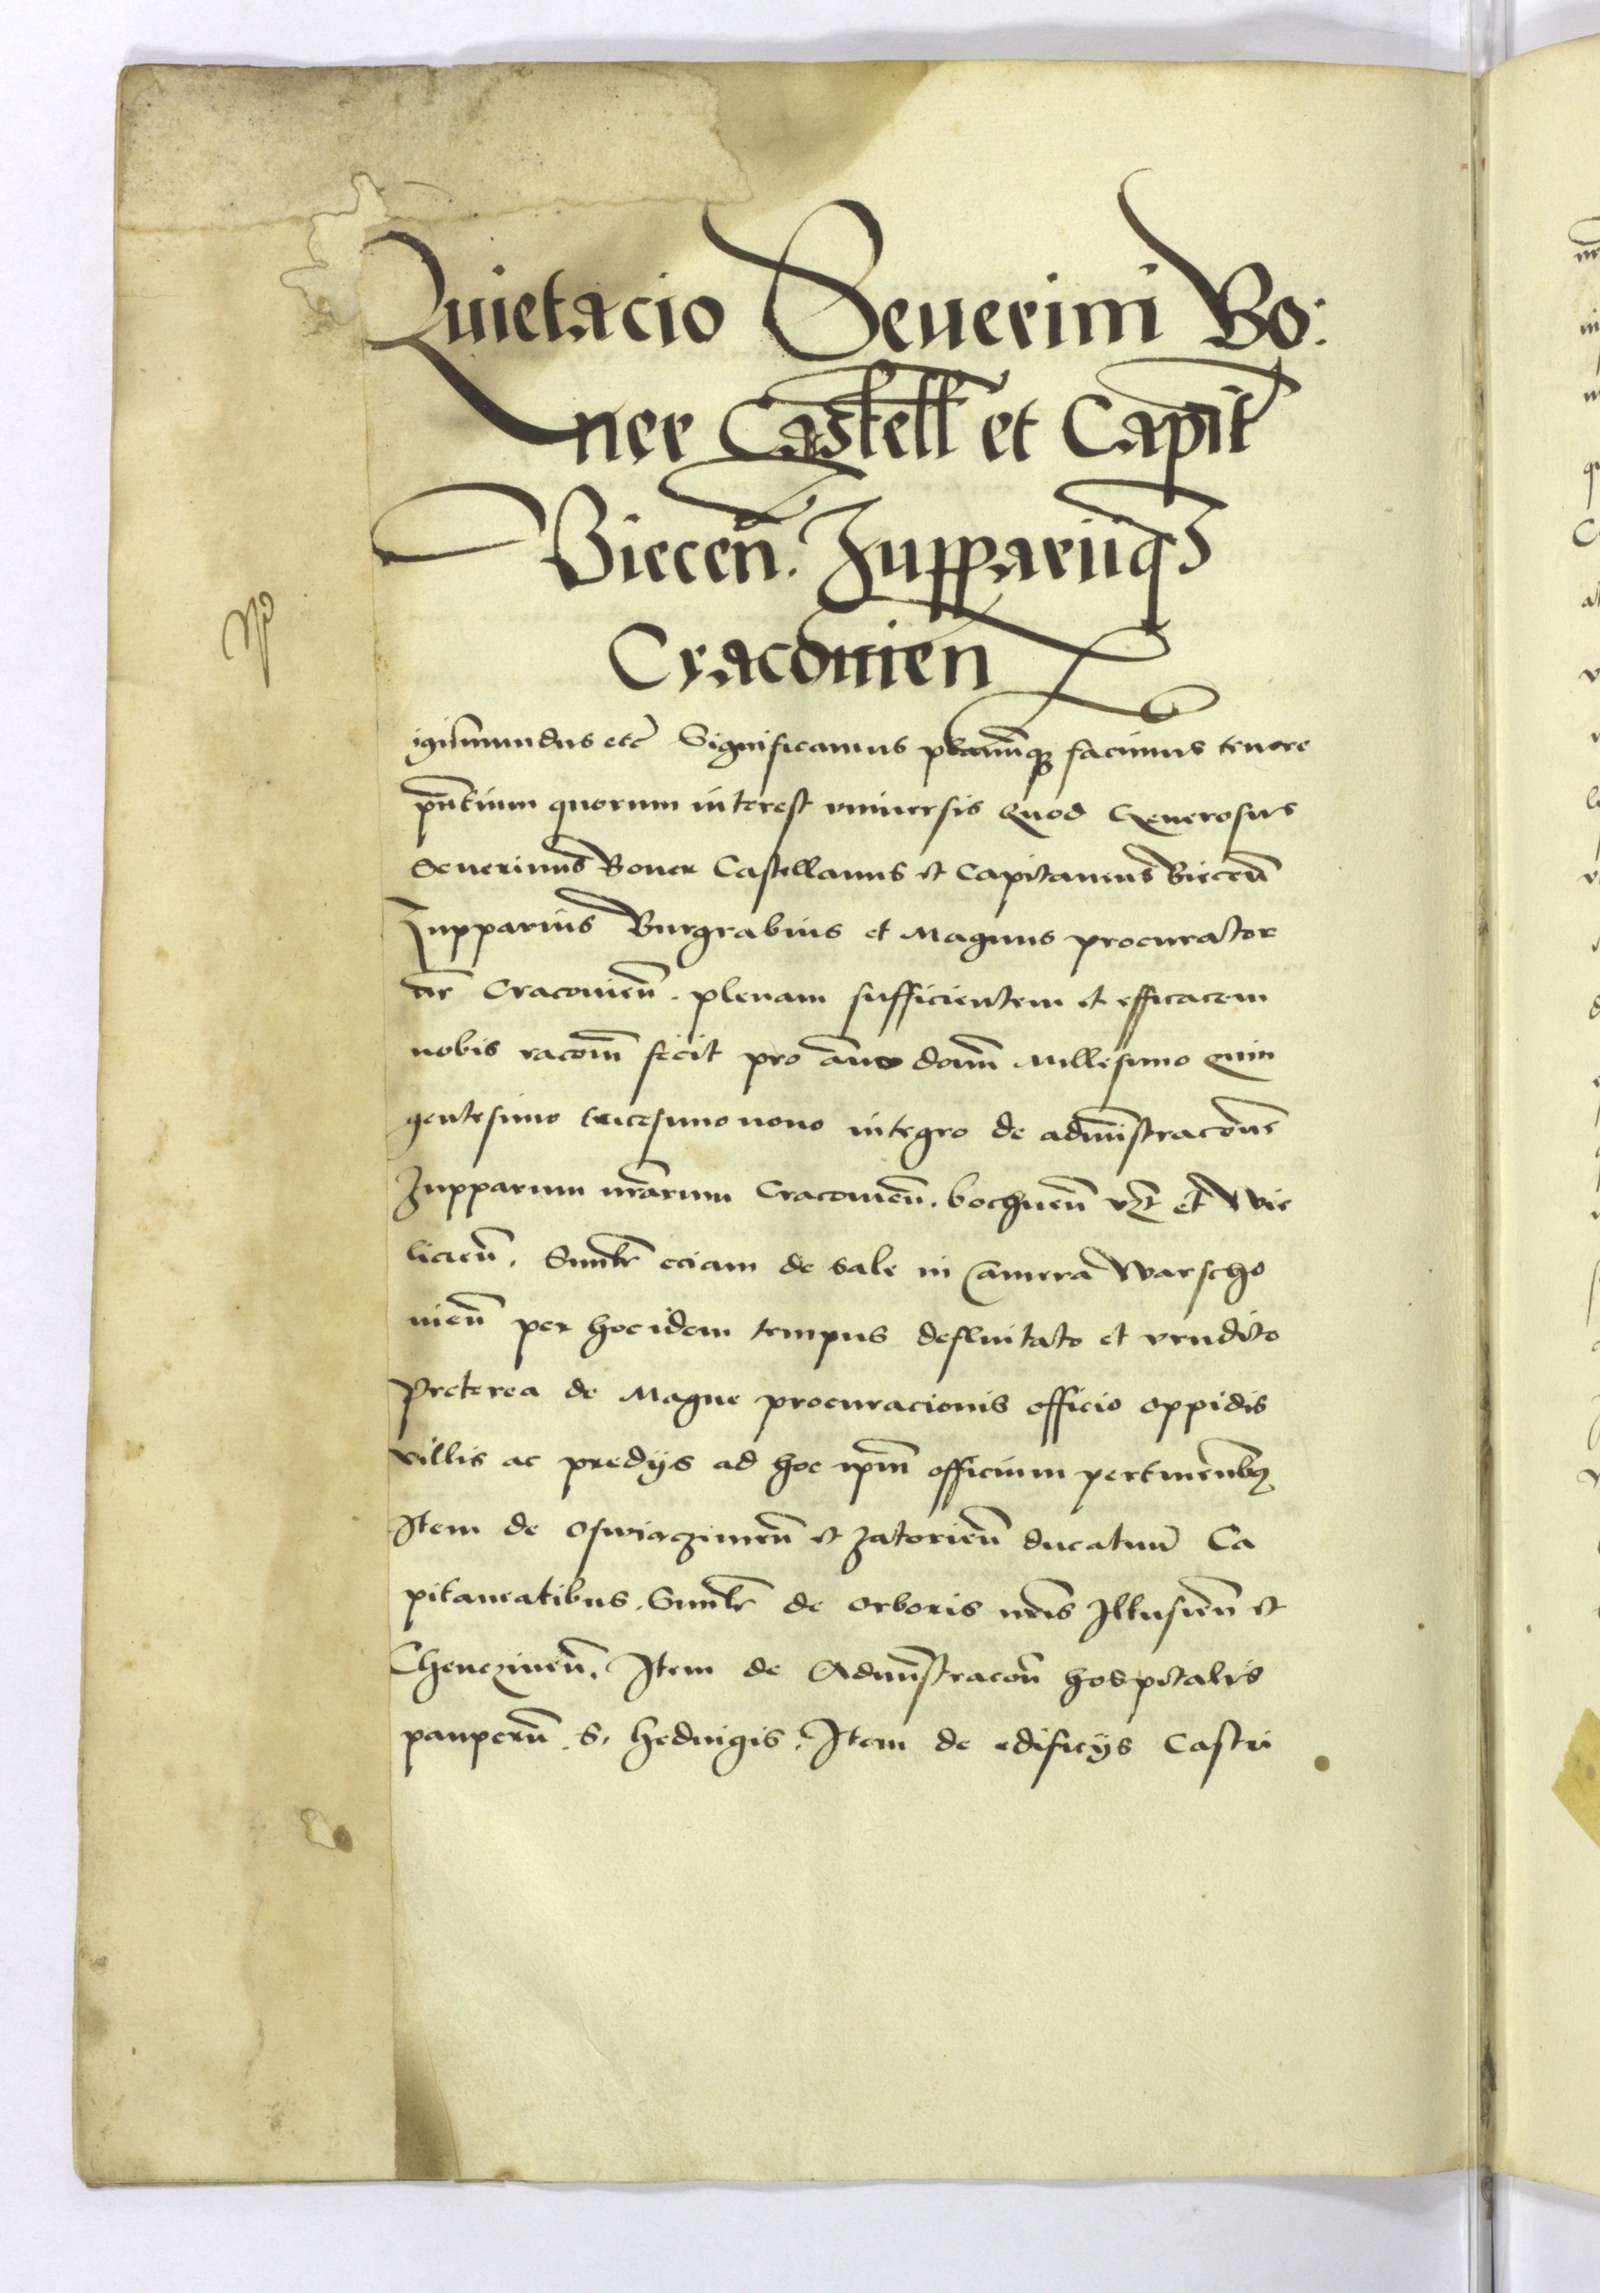 Quietacio Seuerini Bo:
ner Castell et Capit
Biecen̄. Zupparijq3
Craconien
igismundus etc̄ Significamus planūq3 facimus tenore
pn̄tium quorum interest vniuersis Quod Generosus
Seuerinus Boner Castellanus et Capitaneus Biecen̄
Zupparius Burgrabius et Magnus procurator
nr̄ Craconien̄. plenam sufficientem et efficacem
nobis racom̄ fecit pro anno domī Millesimo Quin
gentesimo tricesimo nono integro de admīstracōne
Zupparum nr̄arum Craconien̄. bochnen̄ vz̄t et Wie
licien̄. Simlr̄ eciam de sale in Camera Warscho
uien̄ per hoc idem tempus defluitato et vendito
Preterea de Magne procuracionis officio oppidis
villis ac predijs ad hoc ipm̄ officium pertinen̄bq3
Item de Oswiaczimen̄ et Zatorien̄ ducatuū Ca
pitaneatibus. Simlr̄ de Orboris nr̄is Ilkusien̄ et
Chenczinen̄. Item de Admīstracōn̄ hospitalis
pauperū. S. Heduigis. Item de edificijs Castri